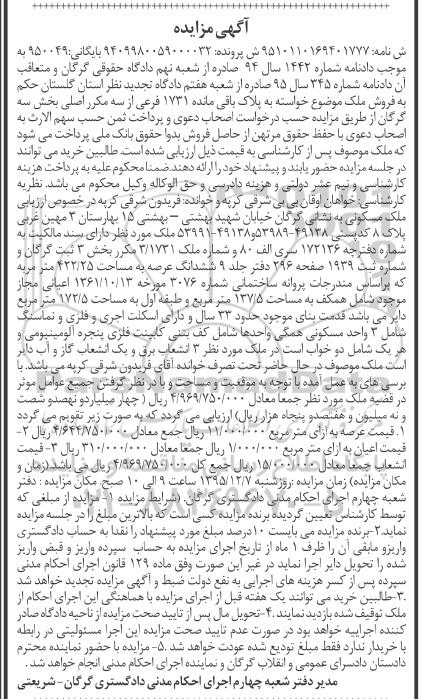 آگهی مزایده
ش نامه: ۹۵۱۰۱۱۰۱۶۹۴۰۱۷۷۷ ش پرونده: ۹۴۰۹۹۸۰۰۵۹۰۰۰۰۳۲ بایگانی:۹۵۰۰۴۹ به
موجب دادنامه شماره ۱۴۴۲ سال ۹۴ صادره از شعبه نهم دادگاه حقوقی گرگان و متعاقب
آن دادنامه شماره ۳۴۵ سال ۹۵ صادره از شعبه هفتم دادگاه تجدید نظر استان گلستان حکم
به فروش ملک موضوع خواسته به پلاک باقی مانده ۱۷۳۱ فرعی از سه مکرر اصلی بخش سه
گرگان از طریق مزایده حسب درخواست اصحاب دعوی و پرداخت ثمن حسب سهم الارث به
اصحاب دعوی با حفظ حقوق مرتهن از حاصل فروش بدوا حقوق بانک ملی پرداخت می شود
که ملک موصوف پس از کارشناسی به قیمت ذیل ارزیابی شده است. طالبین خرید می توانند
در جلسه مزایده حضور یابند و پیشنهاد خود را ارائه دهند.ضمنا محکوم علیه به پرداخت هزینه
کارشناسی و نیم عشر دولتی و هزینه دادرسی و حق الوکاله وکیل محکوم می باشد. نظریه
کارشناسی: خواهان اوقلن بی بی شرقی کریه و خوانده: فریدون شرقی کریه در خصوص ارزیابی
ملک مسکونی به نشانی گرگان خیابان شهید بهشتی – بهشتی ۱۵ بهارستان ۳ مهین غربی
پلاک ۸ کدپستی ۴۹۱۳۸-۵۳۹۸۹و۴۹۱۳۸-۵۳۹۹۱ ملک مورد نظر دارای سند مالکیت به
شماره دفترچه ۱۷۲۱۳۶ سری الف ۸۰ و شماره ملک ۳/۱۷۳۱ مکرر بخش ۳ ثبت گرگان و
شماره ثبت ۱۹۳۹ صفحه ۲۹۶ دفتر جلد ۹ ششدانگ عرصه به مساحت ۴۲۲/۲۵ متر مربع
که براساس مندرجات پروانه ساختمانی شماره ۳۰۷۶ مورخه ۱۳۶۱/۱۰/۱۳ اعیانی مجاز
موجود شامل همکف به مساحت ۱۳۷/۵ متر مربع و طبقه اول به مساحت ۱۷۲/۵ متر مربع
دایر می باشد قدمت بنای موجود حدود ۳۳ سال و دارای اسکلت اجری و فلزی و نماسنگ
شامل ۳ واحد مسکونی همگی واحدها شامل کف بتنی کابینت فلزی پنجره آلومینیومی و
هر یک شامل دو خواب است در ملک مورد نظر ۳ انشعاب برق و یک انشعاب گاز و آب دایر
است ملک موصوف در حال حاضر تحت تصرف خوانده آقای فریدون شرقی کریه می باشد. با
بررسی های به عمل آمده با توجه به موقعیت و مساحت و با در نظر گرفتن جمیع عوامل موثر
در قضیه ملک مورد نظر جمعا معادل ۴/۹۶۹/۷۵۰/۰۰۰ ریال ( چهار میلیاردو نهصدو شصت
و نه میلیون و هفتصدو پنجاه هزار ریال) ارزیابی می گردد که به صورت زیر تقویم می گردد
۱. قیمت عرصه به ازای متر مربع ۱۱/۰۰۰/۰۰۰ ریال جمع معادل ۴/۶۴۴/۷۵۰/۰۰۰ ریال ۲-
قیمت اعیان به ازای متر مربع ۱/۰۰۰/۰۰۰ ریال جمعا معادل ۳۱۰/۰۰۰/۰۰۰ ریال ۳- قیمت
انشعاب جمعا معادل ۱۵/۰۰۰/۰۰۰ ریال جمع کل ۴/۹۶۹/۷۵۰/۰۰۰ ریال می باشد.(زمان و
مکان مزایده) زمان مزایده :روزشنبه ۱۳۹۵/۱۲/۷ ساعت ۹ الی ۱۰ صبح. مکان مزایده : دفتر
شعبه چهارم اجرای احکام مدنی دادگستری گرگان. (شرایط مزایده ۱- مزایده از مبلغی که
توسط کارشناس تعیین گردیده برنده مزایده کسی است که بالاترین مبلغ را در جلسه مزایده
نماید.۲-برنده مزایده می بایست ۱۰درصد مبلغ مورد پیشنهاد را نقدا به حساب دادگستری
واریزو مابقی آن را ظرف ۱ ماه از تاریخ اجرای مزایده به حساب سپرده واریز و قبض واریز
شده را تحویل دایر اجرا نماید در غیر این صورت وفق ماده ۱۲۹ قانون اجرای احکام مدنی
سپرده پس از کسر هزینه های اجرایی به نفع دولت ضبط و آگهی مزایده تجدید خواهد شد
.۳-طالبین خرید می توانند یک هفته قبل از اجرای مزایده با هماهنگی این اجرای احکام از
ملک توقیف شده بازدید نمایند.۴-تحویل مال پس از تایید صحت مزایده از ناحیه دادگاه صادر
کننده اجراییه خواهد بود در صورت عدم تایید صحت مزایده این اجرا مسئولیتی در رابطه
با خریدار ندارد فقط مبلغ تودیع شده عودت خواهد شد .۵- مزایده با حضور نماینده محترم
دادستان دادسرای عمومی و انقلاب گرگان و نماینده اجرای احکام مدنی انجام خواهد شد.
مدیر دفتر شعبه چهارم اجرای احکام مدنی دادگستری گرگان- شریعتی